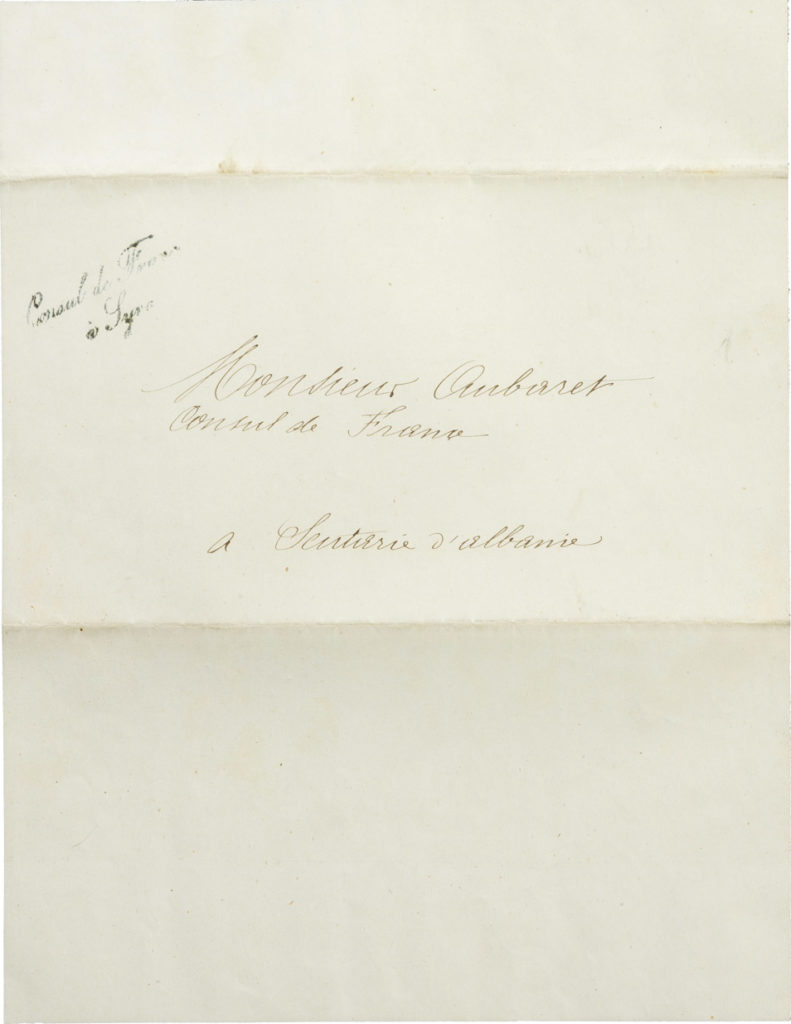 Consul de France
à Syra
Monsieur Aubaret
Consul de France
a Scutarie d'albanie